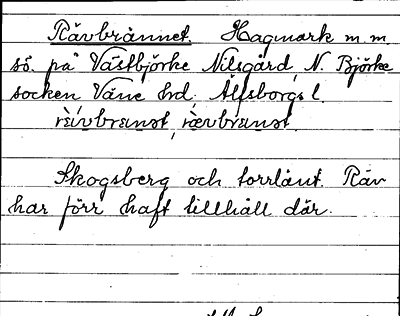 Rävbrännet. Hagmark m. m
sö. på Västbjörke Nilsgård, N. Björke
socken Väne hrd, Älfsborgs l.
Skogsberg och torrlänt. Räv
har förr haft tillhåll där.